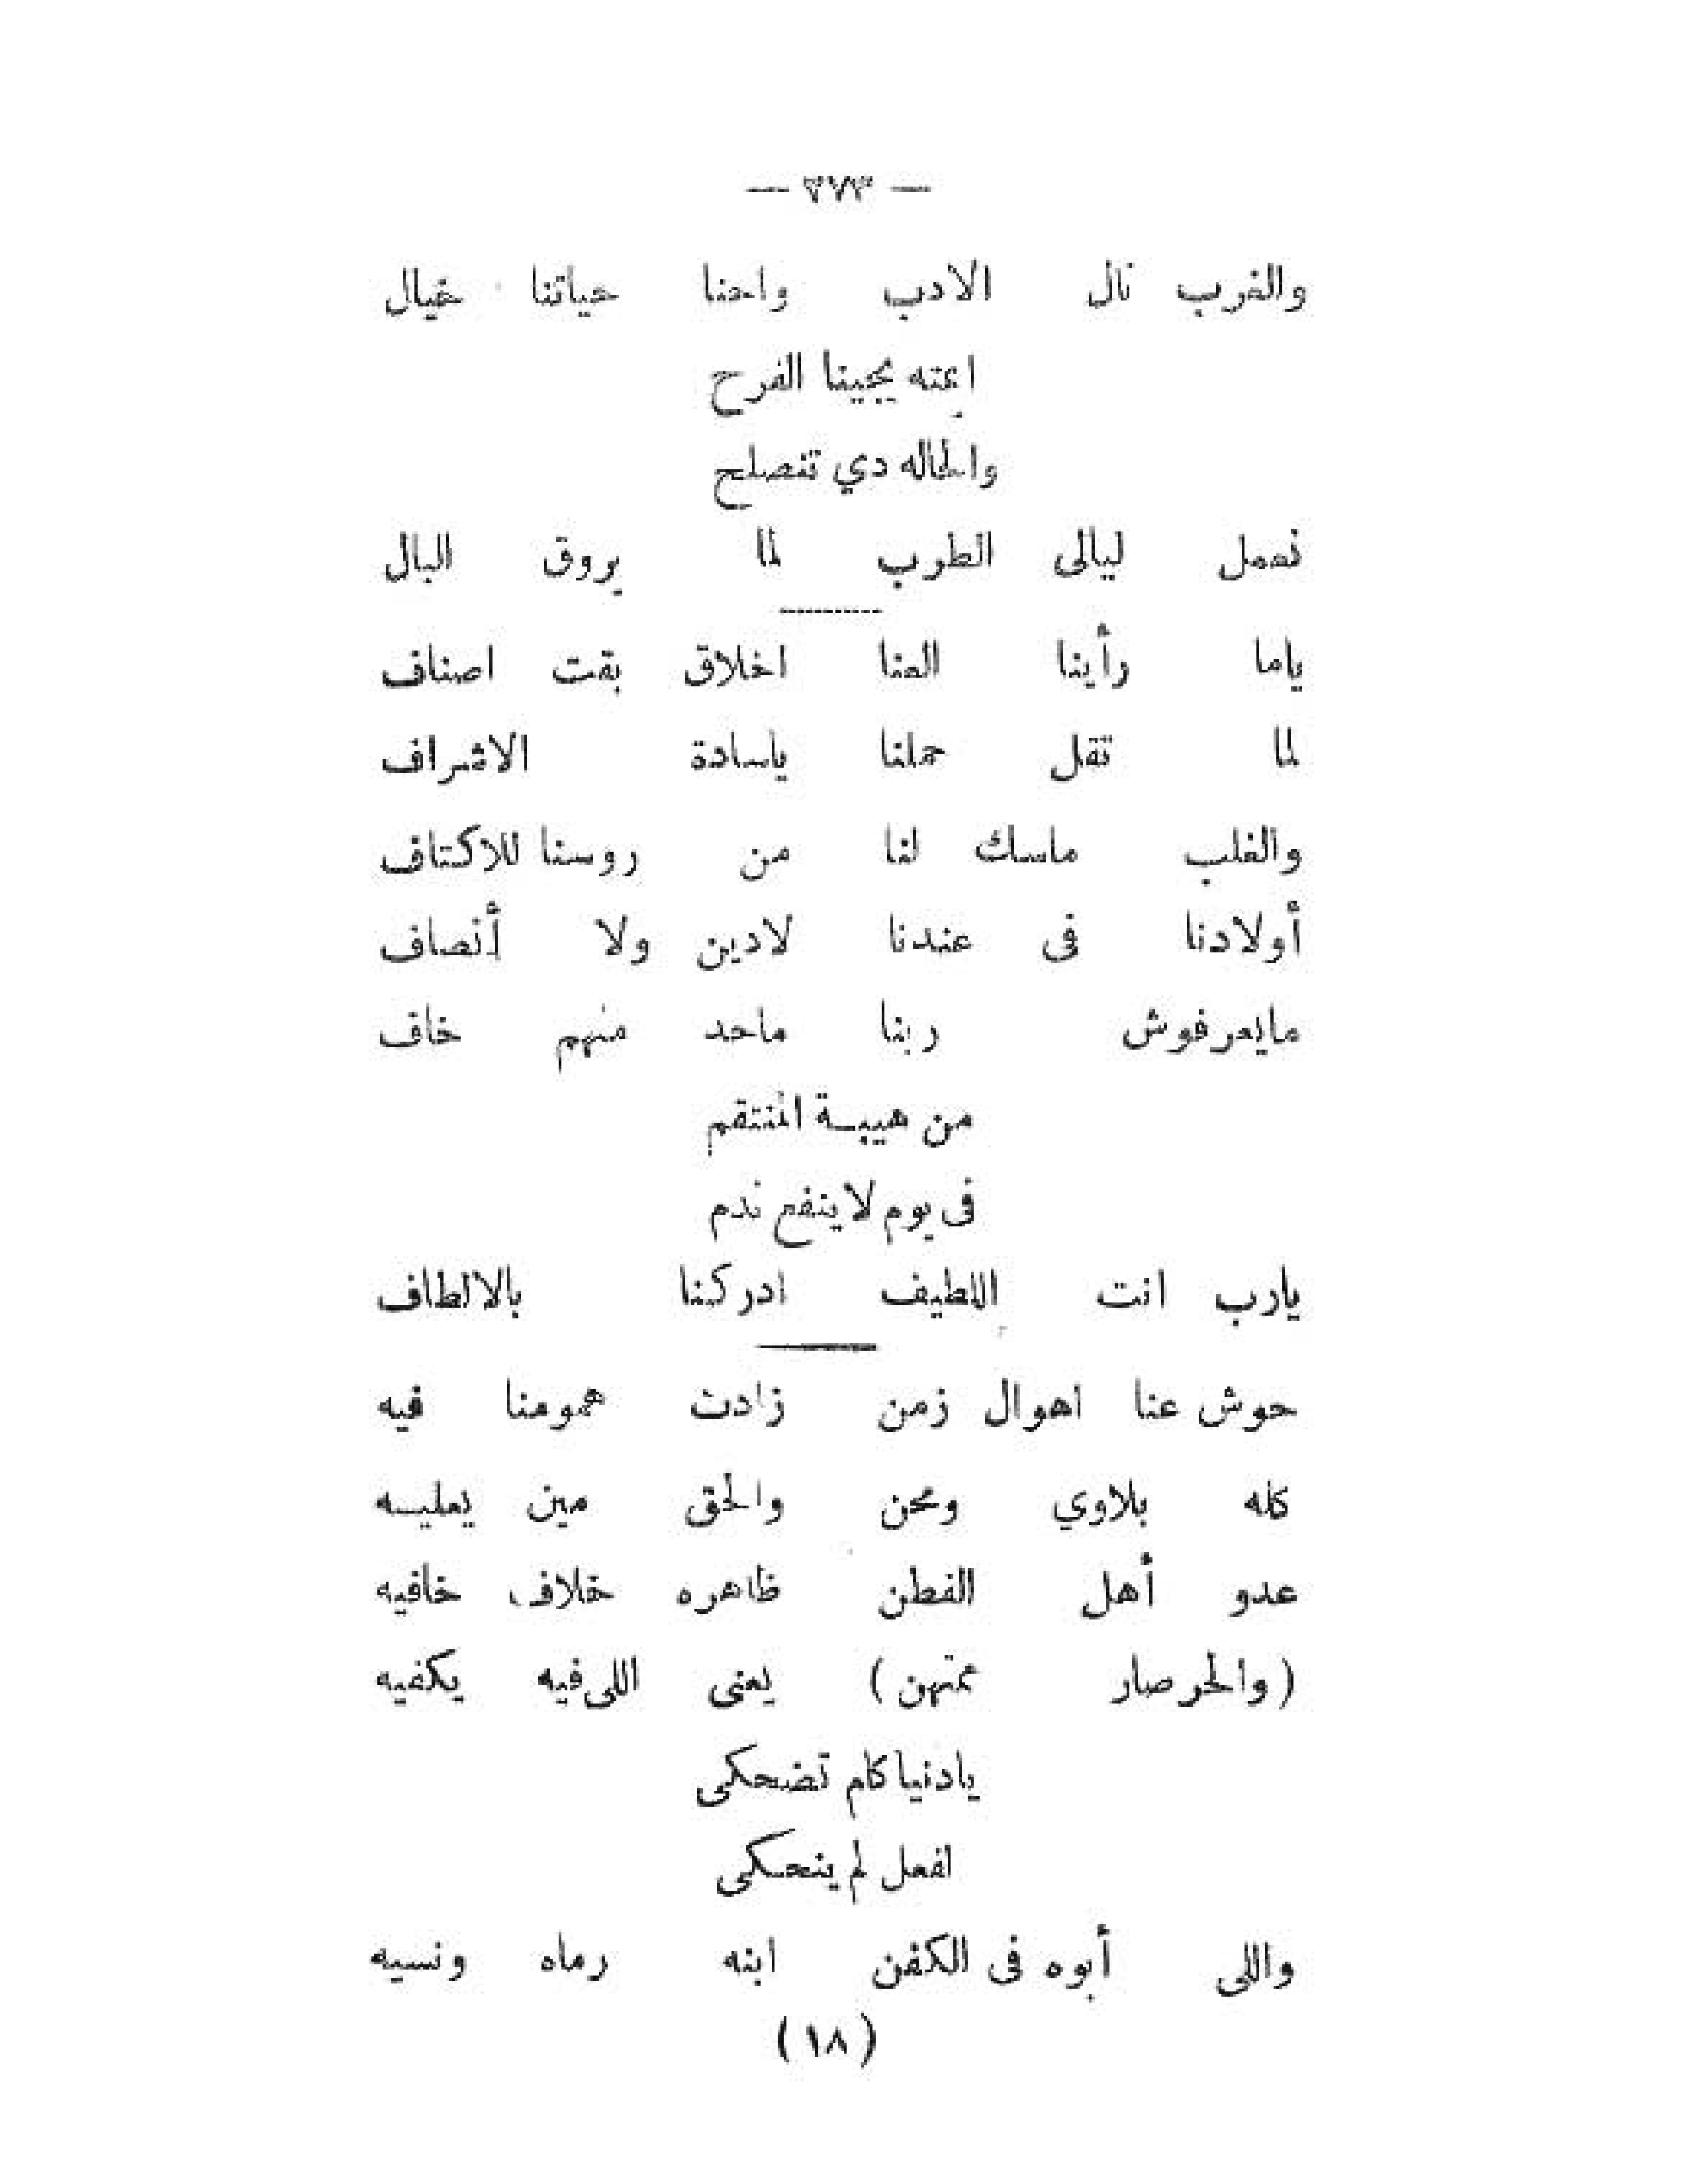 — ٢٧٣ —
والغرب نال الادب واحنا حياتنا خيال
امته يجينا الفرح
والحاله دي تنصلح
نعمل ليالى الطرب لما يروق البال
ياما رأينا العنا اخلاق بقت اصناف
لما تقل حملنا ياسادة الاشراف
والغلب ماسك لنا من روسنا للاكتاف
أولادنا فى عندنا لادين ولا أنصاف
مايعرفوش ربنا ماحد منهم خاف
من هيبة المنتقم
فى يوم لاينفع ندم
يارب انت اللطيف ادركنا بالالطاف
حوش عنا اهوال زمن زادت همومنا فيه
كله بلاوي ومحن والحق مين يعليه
عدو أهل الفطن ظاهره خلاف خافيه
(والحر صار ممتهن) يعنى اللى فيه يكفيه
يادنيا كام تضحكى
لفعل لم ينحكى
واللى أبوه فى الكفن ابنه رماه ونسيه
(١٨)